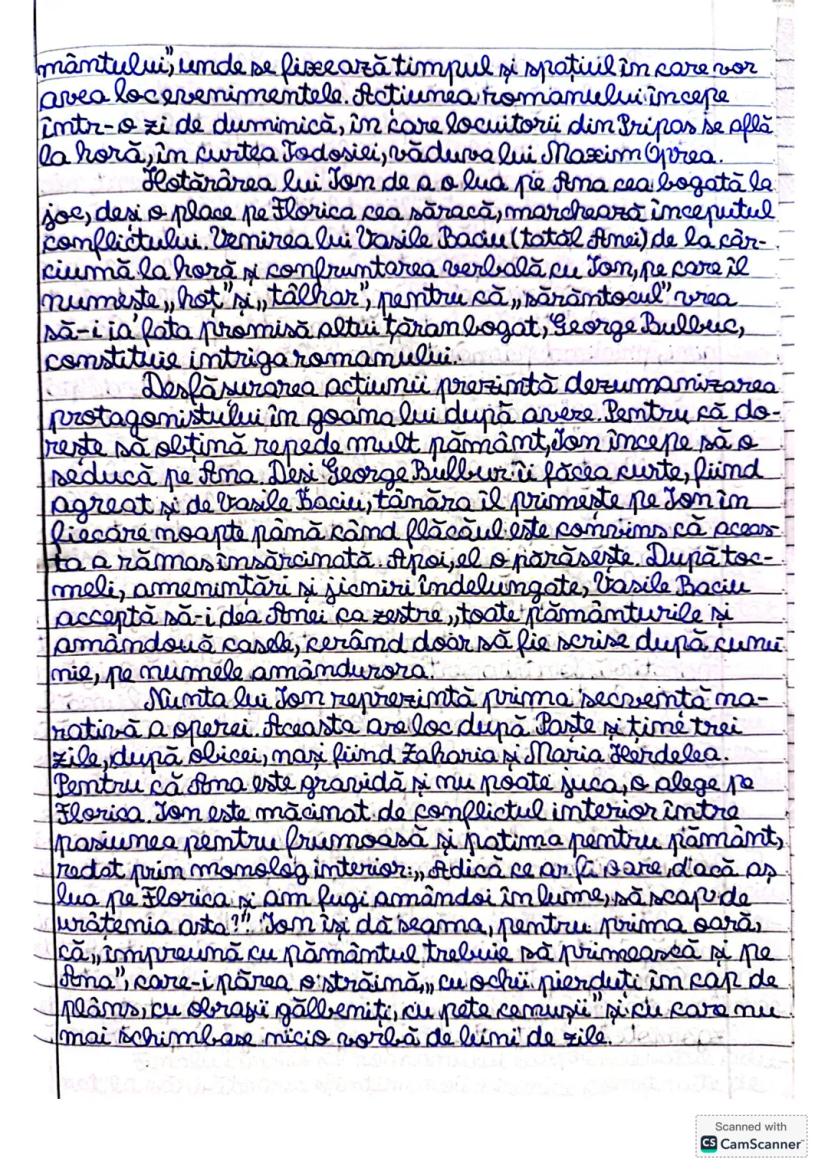 mântului", unde se fixează timpul și spațiul în care vor
avea loc evenimentele. Acțiunea romanului începe
într-o zi de duminică, în care locuitorii din Pripas se află
la horă, în curtea Todosiei, văduva lui Maxim Oprea.
Hotărârea lui Ion de a o lua pe Ana cea bogată la
joc, deși o place pe Florica cea săracă, marchează începutul
conflictului. Venirea lui Vasile Baciu (tatăl Anei) de la câr-
ciumă la horă și confruntarea verbală cu Ion, pe care îl
numește „hoț" și „tâlhar", pentru că „sărăntocul" vrea
să-i ia fata promisă altui țăran bogat, George Bulbuc,
constituie intriga romanului.
Desfășurarea acțiunii prezintă dezumanizarea
protagonistului în goana lui după avere. Pentru că do-
rește să obțină repede mult pământ, Ion începe să o
seducă pe Ana. Deși George Bulbuc îi făcea curte, fiind
agreat și de Vasile Baciu, tânăra îl primește pe Ion în
fiecare noapte până când flăcăul este convins că aceas-
ta a rămas însărcinată. Apoi, el o părăsește. După toc-
meli, amenințări și șicniri îndelungate, Vasile Baciu
acceptă să-i dea Anei ca zestre „toate pământurile și
amândouă casele, cerând doar să fie scrise după cunu
nie, pe numele amândurora.
Nunta lui Ion reprezintă prima secvență na-
rativă a operei. Aceasta are loc după Paște și ține trei
zile, după obicei, nași fiind Zaharia și Maria Herdelea.
Pentru că Ana este gravidă și nu poate juca, o alege pe
Florica. Ion este măcinat de conflictul interior între
pasiunea pentru frumoasă și patima pentru pământ,
redat prin monolog interior: „Adică ce ar fi oare, dacă aș
lua pe Florica și am fugi amândoi în lume, să scap de
urâțenia asta?". Ion își dă seama, pentru prima oară,
că „împreună cu pământul trebuie să primească și pe
Ana", care-i părea o străină „cu ochii pierduți în cap de
plâns, cu obrajii gălbeniți, cu pete cenușii" și cu care nu
mai schimbase nicio vorbă de luni de zile.
Scanned with
CS CamScanner